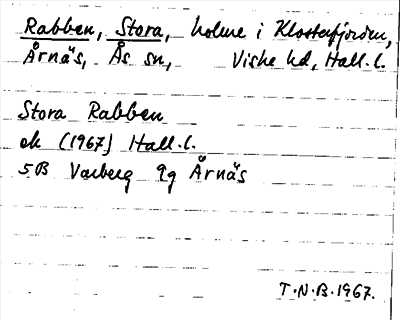 Rabben, Stora, holme i Klosterfjorden,
Årnäs, Ås sn, Viske hd, Hall. l.
Stora Rabben
ek (1967) Hall. l.
5B Varberg 9g Årnäs
T.N.B. 1967.